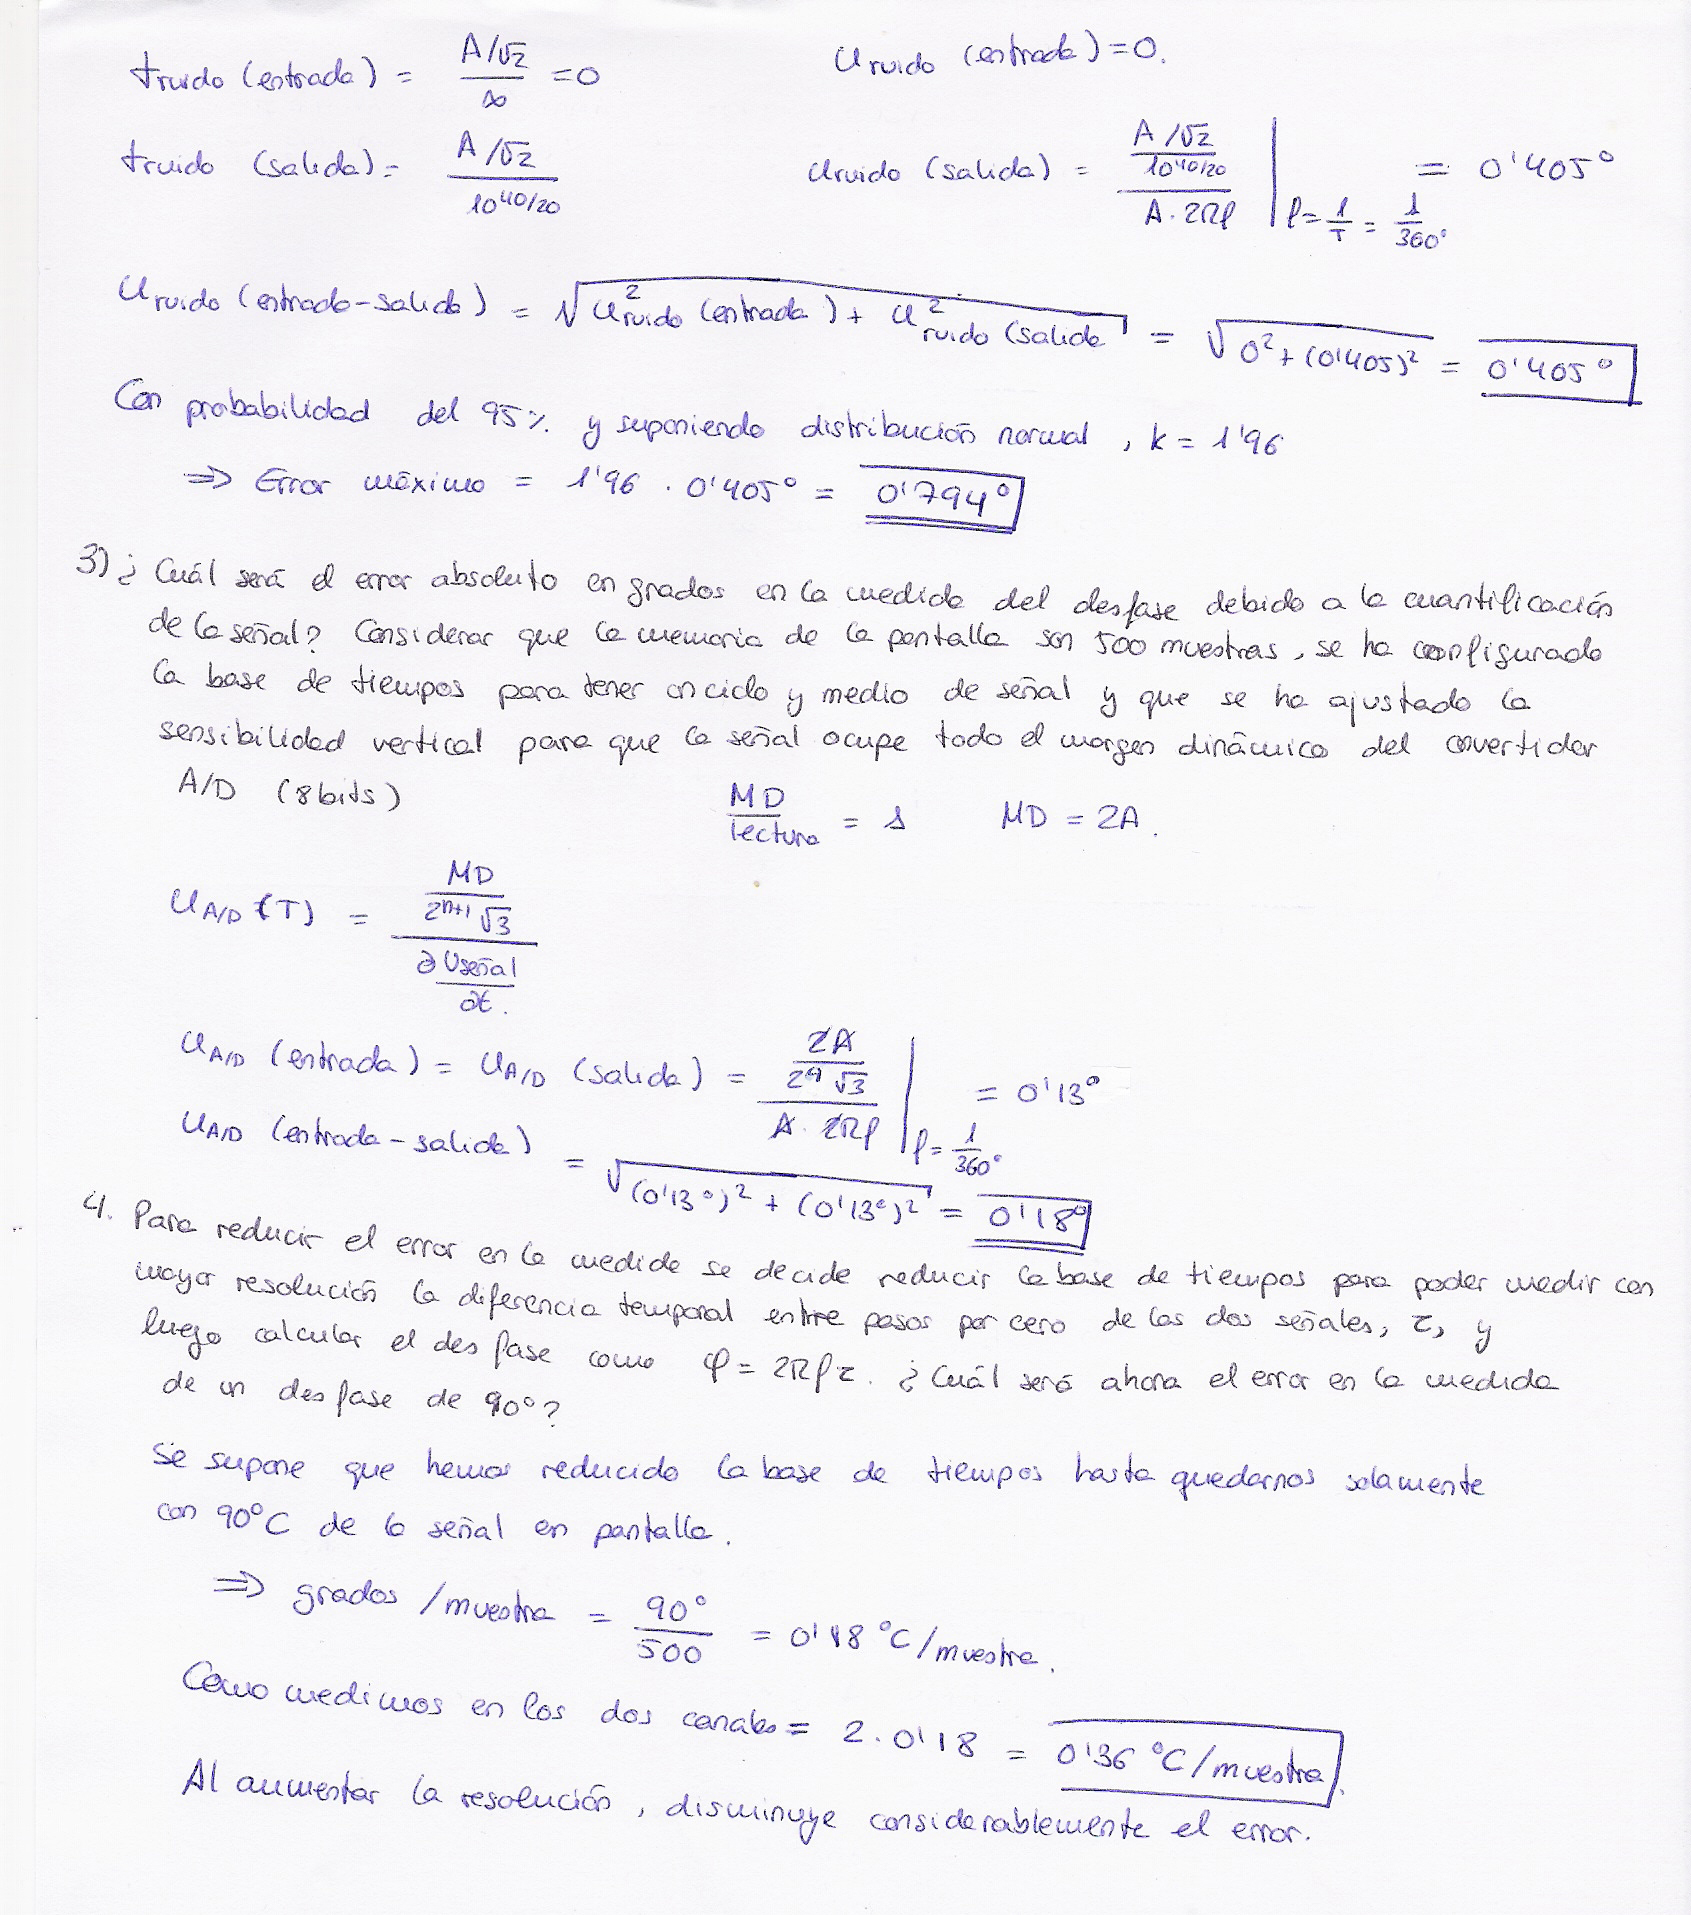 truido (entrada) = (A/√2)/∞ = 0    Uruido (entrada) = 0.
truido (salida) = (A/√2)/10^(40/20)    Uruido (salida) = ((A/√2)/10^(40/20))/(A·2πf) | f = 1/T = 1/360° = 0'405°
Uruido (entrada-salida) = √(U²ruido (entrada) + U²ruido (salida) = √(0² + (0'405)²) = 0'405°
Con probabilidad del 95% y suponiendo distribución normal, k = 1'96
⇒ Error máximo = 1'96 · 0'405° = 0'794°
3) ¿Cuál será el error absoluto en grados en la medida del desfase debido a la cuantificación
de la señal? Considerar que la memoria de la pantalla son 500 muestras, se ha configurado
la base de tiempos para tener un ciclo y medio de señal y que se ha ajustado la
sensibilidad vertical para que la señal ocupe todo el margen dinámico del covertidor
A/D (8 bits)    MD/lectura = 1    MD = 2A.
U A/D (T) = (MD/(2^(n+1) √3))/(∂Useñal/∂t.)
U A/D (entrada) = U A/D (salida) = (2A/(2^9 √3))/(A · 2πf) | f = 1/360° = 0'13°
U A/D (entrada-salida) = √((0'13°)² + (0'13°)²) = 0'18°
4. Para reducir el error en la medida se decide reducir la base de tiempos para poder medir con
mayor resolución la diferencia temporal entre pasos por cero de las dos señales, τ, y
luego calcular el desfase como φ = 2πfτ. ¿Cuál será ahora el error en la medida
de un desfase de 90°?
Se supone que hemos reducido la base de tiempos hasta quedarnos solamente
con 90°C de la señal en pantalla.
⇒ grados/muestra = 90°/500 = 0'18 °C/muestra.
Como medimos en los dos canales = 2·0'18 = 0'36 °C/muestra.
Al aumentar la resolución, disminuye considerablemente el error.